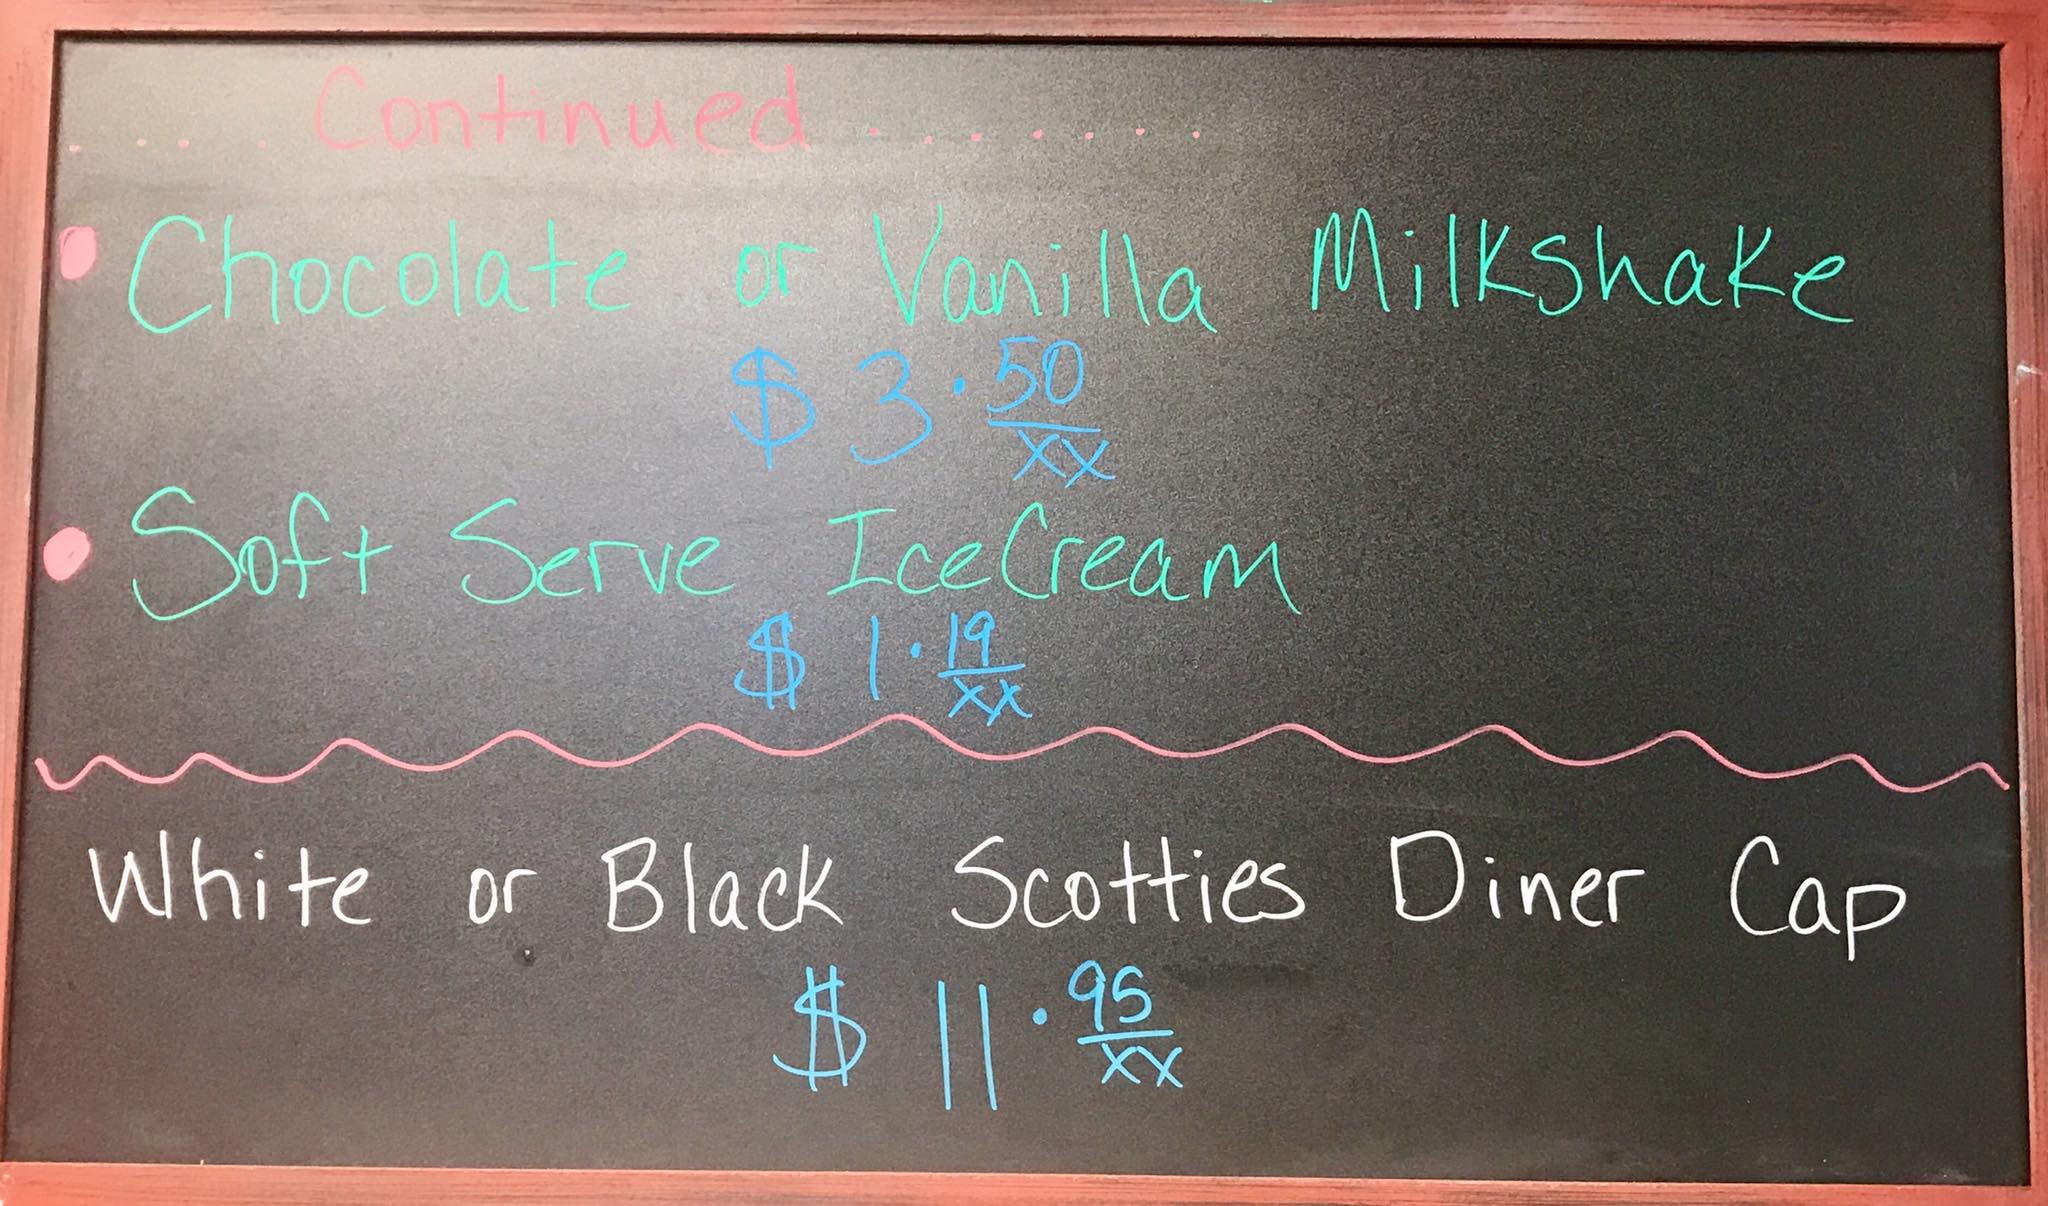 .... Continued .......
• Chocolate or Vanilla Milkshake
$ 3.50/xx
• Soft Serve IceCream
$ 1.19/xx
White or Black Scotties Diner Cap
$ 11.95/xx